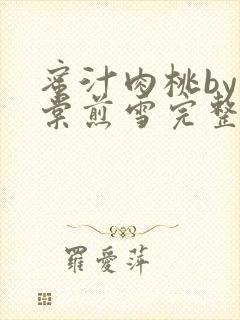 蜜汁肉桃by
棠煎雪完整
羅愛萍